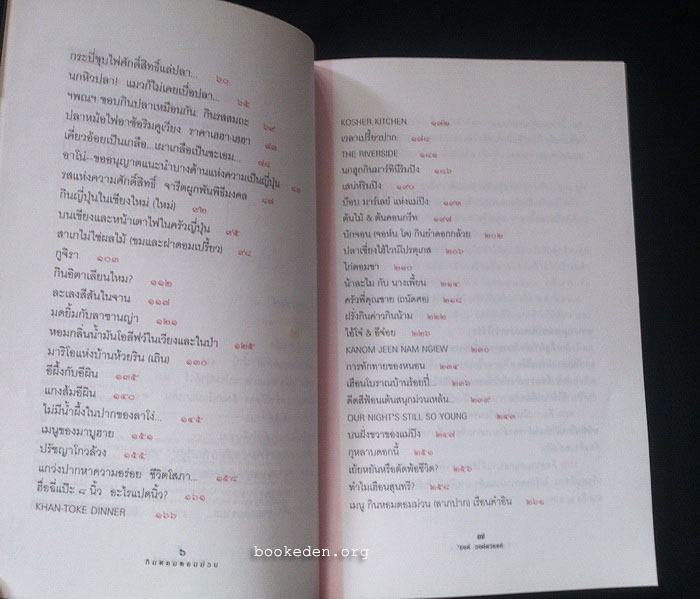 กระบี่ชุบไฟศักดิ์สิทธิ์แล่ปลา... ๖๐
นกหิวปลา! แมวก็ไม่เคยเบื่อปลา... ๖๕
ฯพณฯ ชอบกินปลาเหมือนกัน กินรสสมถะ ๖๙
ปลาหม้อไฟอาซ้อริมคูเวียง ราคาเฮฮา-เฮฮา
เคี่ยวอ้อยเป็นเกลือ...เผาเกลือเป็นชะเอม... ๗๘
อาโน่--ขออนุญาตแนะนำบางด้านแห่งความเป็นญี่ปุ่น
รสแห่งความศักดิ์สิทธิ์ จารีตผูกพันพิธีมงคล ๘๗
กินญี่ปุ่นในเชียงใหม่ (ใหม่) ๙๒
บนเขียงและหน้าเตาไฟในครัวญี่ปุ่น ๙๕
สาเกไม่ใช่ผลไม้ (ขมและฝาดอมเปรี้ยว) ๙๘
กูจิรา ๑๐๓
กินอิตาเลียนไหม? ๑๑๒
ละเลงสีสันในจาน ๑๑๗
มดยิ้มกับลาซานญ่า ๑๒๑
หอมกลิ่นน้ำมันโอลีฟว์ในเวียงและในป่า ๑๒๕
มาริโอแห่งบ้านห้วยริน (เถิน) ๑๓๐
อีผึ้งกับอีผิน ๑๓๕
แกงส้มอีผิน ๑๔๐
ไม่มีน้ำผึ้งในปากของลาโง่... ๑๔๕
เมนูของมาบูฮาย ๑๕๑
ปรัชญาโกวล้วง ๑๕๕
แกว่งปากหาความอร่อย ชีวิตโสภา... ๑๕๘
ฮื่อฉี่แป๊ะ ๘ นิ้ว อะไรแปดนิ้ว? ๑๖๑
KHAN-TOKE DINNER ๑๖๖
๖
กินหอมตอมม่วน
KOSHER KITCHEN ๑๗๒
เวลาเปรี้ยวปาก ๑๗๘
THE RIVERSIDE ๑๘๑
นกฮูกกินมาร์ตินีริมปิง ๑๘๖
เสน่ห์ริมปิง ๑๙๐
บ๊อบ มาร์เลย์ แห่งแม่ปิง ๑๙๓
ต้นไม้ & ต้นคอนกรีท ๑๙๗
นักจอน (จอห์น โด) กินยำดอกกล้วย ๒๐๒
ปลาเซี่ยงไฮ้ไวน์โปรตุเกส ๒๐๖
ไก่ดอมชา ๒๑๐
น้าละไม กับ นางเพี้ยน ๒๑๔
ครัวพี่คุณชาย (ถนัดศอ) ๒๑๘
ฝรั่งกินค่าวกินน้าม ๒๒๒
ไอ้โจ้ & อีจ๋อย ๒๒๖
KANOM JEEN NAM NGIEW ๒๓๐
การทักทายของหนอน ๒๓๔
เฮือนโบราณบ้านร้อยปี... ๒๓๖
ดีดสีฟ้อนเต้นสนุกม่วนเหล้น... ๒๓๙
OUR NIGHT'S STILL SO YOUNG ๒๔๓
บนฝั่งขวาของแม่ปิง ๒๔๗
กุหลาบดอกนี้ ๒๕๑
เย้ยหยันหรือตัดพ้อชีวิต? ๒๕๖
ทำไมเฮือนสุนทรี? ๒๕๘
เมนู กินหอมตอมม่วน (ลาภปาก) เรือนคำอิน ๒๖๑
๗
'รงค์ วงษ์สวรรค์
bookeden.org